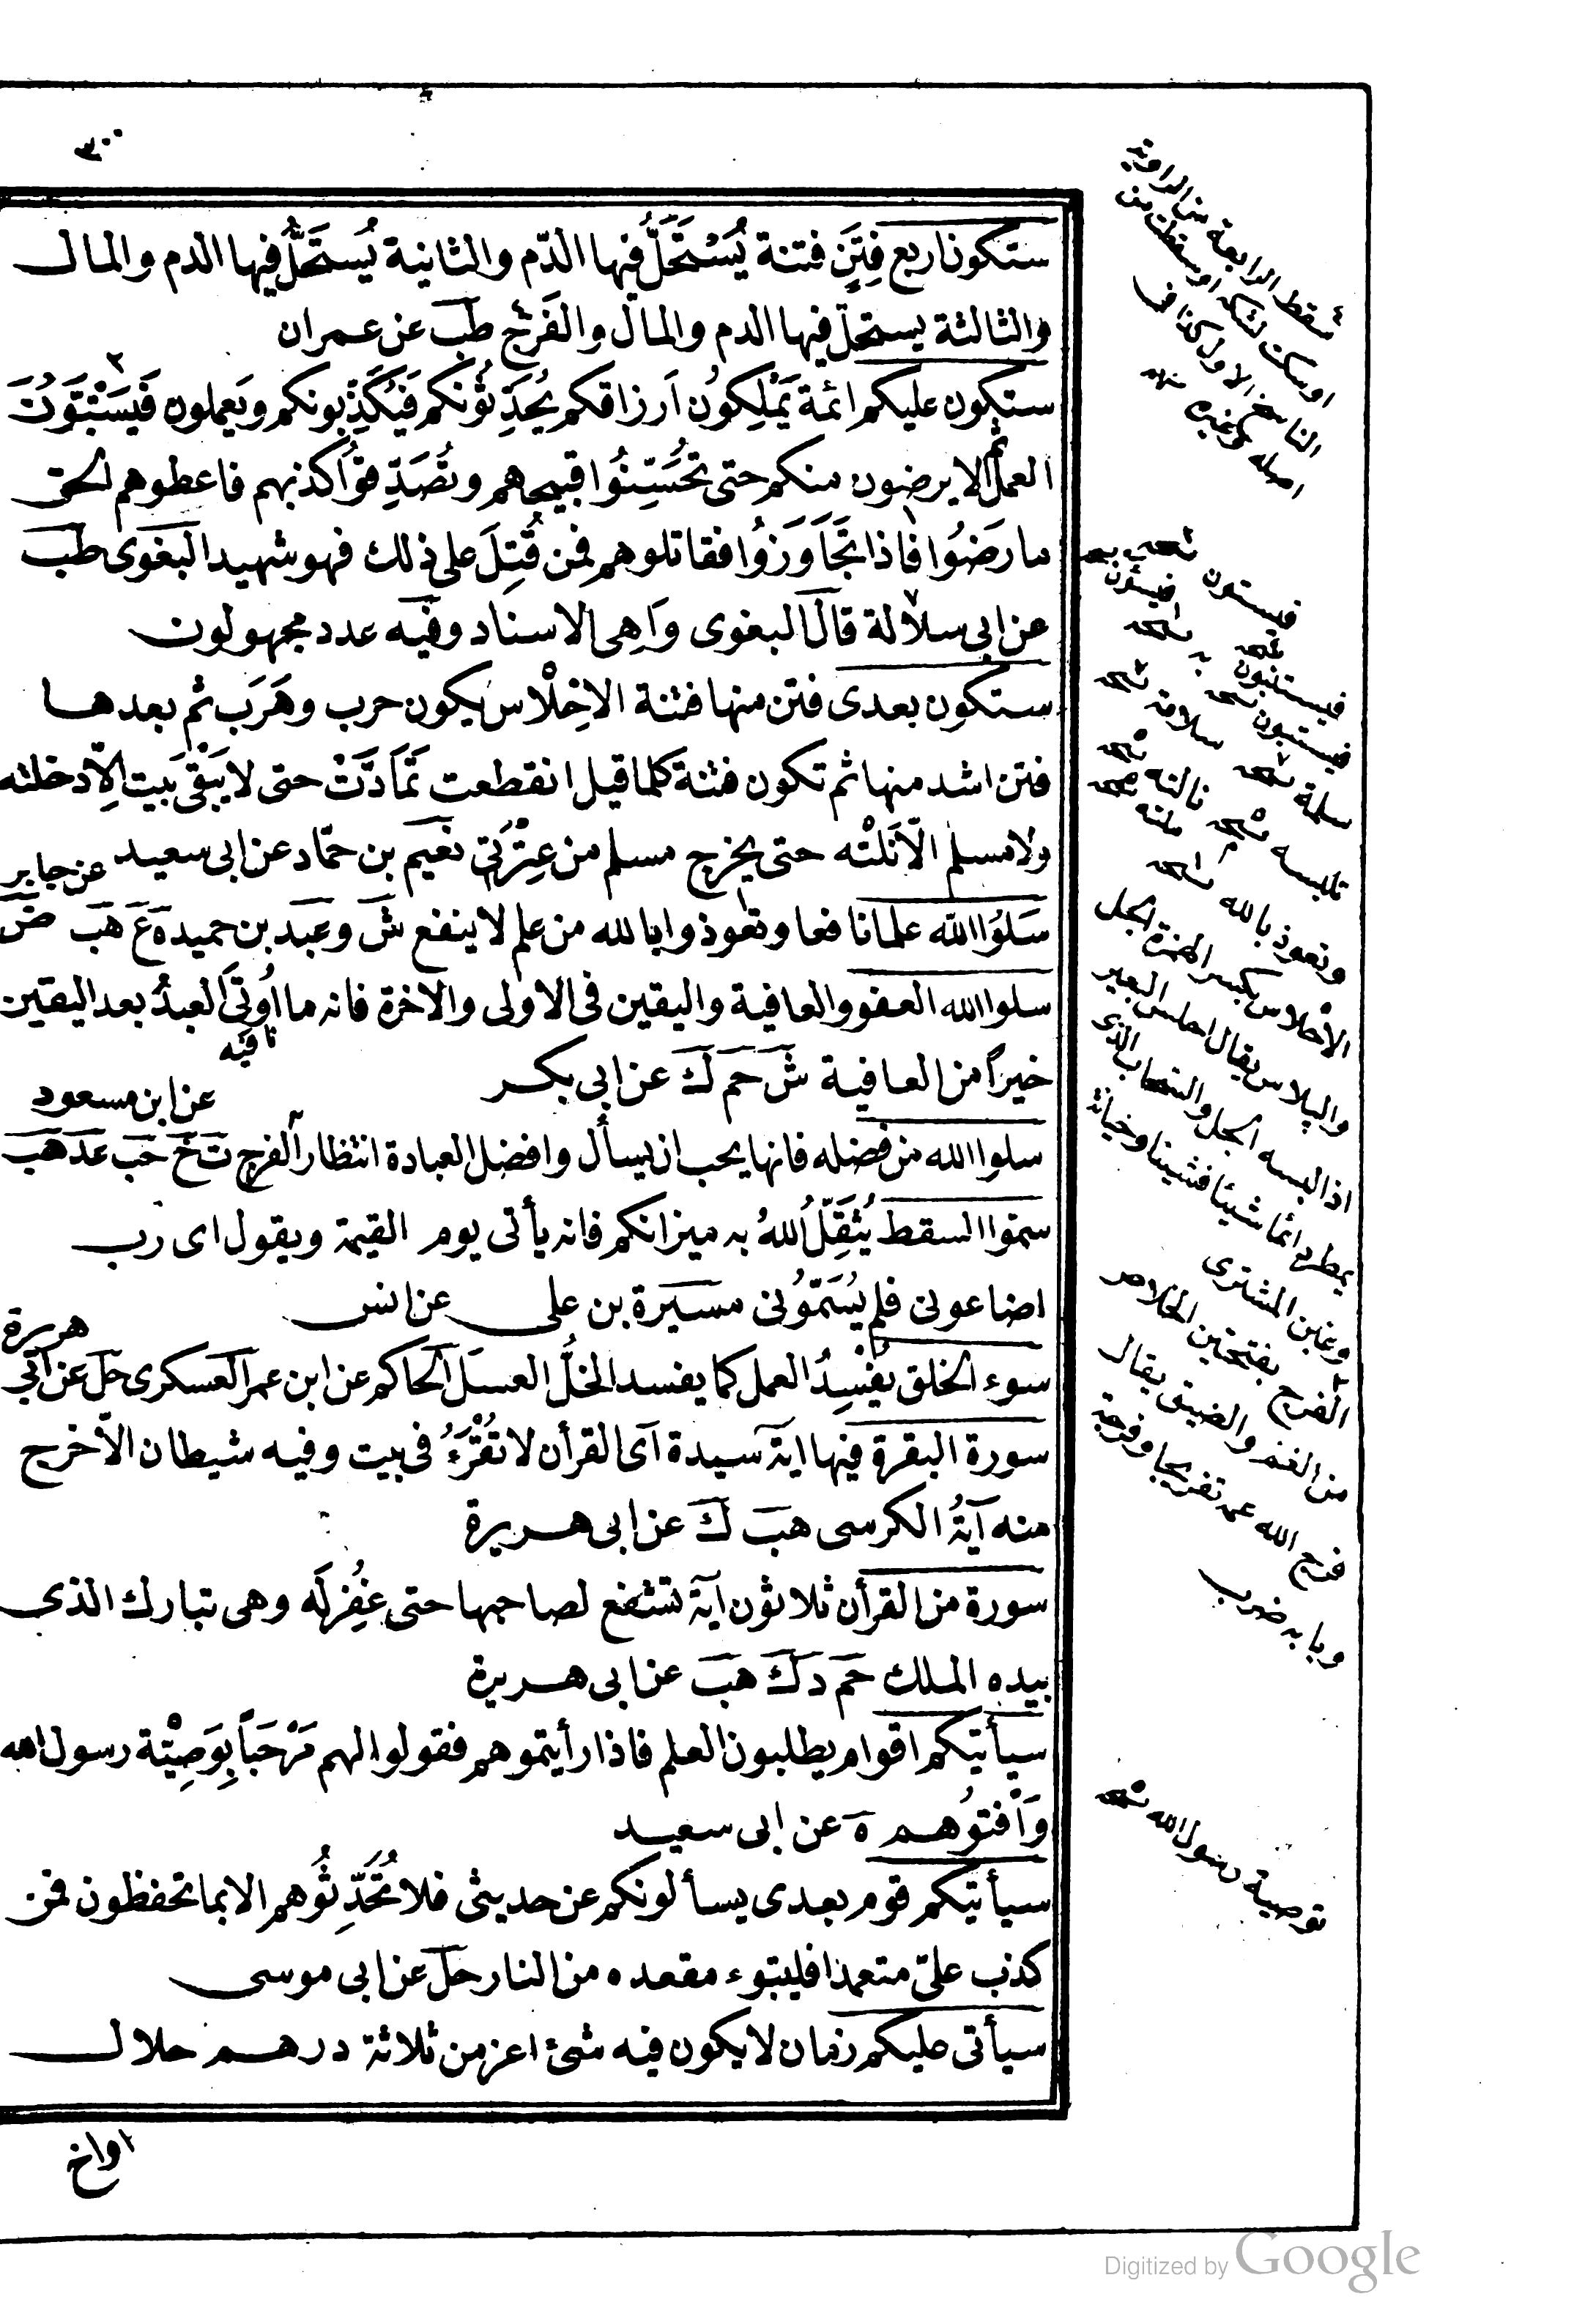 ٣٠٠
ستكون اربع فِتَنٍ فتنة يُسْتَحَلُّ فيها الدّم والثانية يُستَحَلُّ فيها الدم والمال
والثالثة يستحلّ فيها الدم والمال والفَرْج طب عن عمران
ستكون عليكم ائمة يَمْلِكُون اَرزاقكم يُحَدِّثونكم فيُكَذِّبونكم ويَعملون فَيَسْتَبَوَّنَ
العمل لا يرضون منكم حتى تُحَسِّنُوا قبيحهم وتُصَدِّقوا كذبهم فاعطوهم الحق
ما رَضَوا فاذا تَجَاوَزُوا فقاتلوهم فمن قُتِلَ على ذلك فهو شهيد البغوى طب
عن ابى سلالة قال البغوى وَاهِى الاسناد وفيه عدد مجهولون
ستكون بعدى فتن منها فتنة الاخِلْاس يكون حرب وهَرَب ثم بعدها
فتن اشد منها ثم تكون فتنة كلما قيل انقطعت تَمَادَّتْ حتى لا يَبْقَى بَيت اِلّا دخلته
ولا مسلم الّا نَلَتْه حتى يخرج مسلم من عِتْرَتى نعَيم بن حمّاد عن ابى سعيد
عن جابر
سَلُوا الله علما نافعا وتعوذوا بالله من علم لا ينفع ش وعبد بن حميد ه ع هب ض
سلوا الله العفو والعافية واليقين فى الاولى والاخرة فانه ما اُوتِىَ العبدُ بعد اليقين
خيراً من العافية ش حم ك عن ابى بكر
عن ابن مسعود
سلوا الله من فضله فانها يحب ان يسأل وافضل العبادة انتظار الفرج ت خ حب عد هب
سمّوا السقط يُثَقِّلُ اللهُ به ميزانكم فانه يأتى يوم القيمة ويقول اى رب
اضاعونى فلم يُسَمّوُنى مَسيَرة بن على عن انس
هريرة
سوء الخلق يفْسِدُ العمل كما يفسد الخلُّ العسل الحاكم عن ابن عمر العسكرى حل عن ابى
سورة البقرة فيها اية سيدة آى القرأن لا تُقْرَءُ فى بيت وفيه شيطان الّا خرج
منه آيةُ الكرسى هب ك عن ابى هريرة
سورة من القرأن ثلاثون آية تشفع لصاحبها حتى غُفِرَلَه وهى تبارك الذى
بيده الملك حم د ك هب عن ابى هريرة
سيأتيكم اقوام يطلبون العلم فاذا رأيتموهم فقولوا لهم مَرْحَباً بِوَصِيَّة رسول الله
وَاَفتوُهم ه عن ابى سعيد
سيأتيكم قوم بعدى يسألونكم عن حديثى فلا تُحَدِّثُوهم الا بما تحفظون فمن
كذب علىّ متعمدا فليتبوء مقعده من النار حل عن ابى موسى
سيأتى عليكم زمان لا يكون فيه شئ اعز من ثلاثة درهم حلال
او اخ
سقط الرابعة من الراوى
او سكت لشكه او سقطت من
الناسخ الاول كذا فى
اصله وغيره
وتعوذ بالله
الأحلاس بكسر الهمزة الحمل
والپلاس يقال احلس البعير
اذا البسه الحمل
وغابن المشترى
الفرج بفتحتين الخلاص
من الغم والضيق يقال
فرج الله عنه تفريجا وفرجة
وبابه ضرب
توصية رسول الله
Digitized by Google